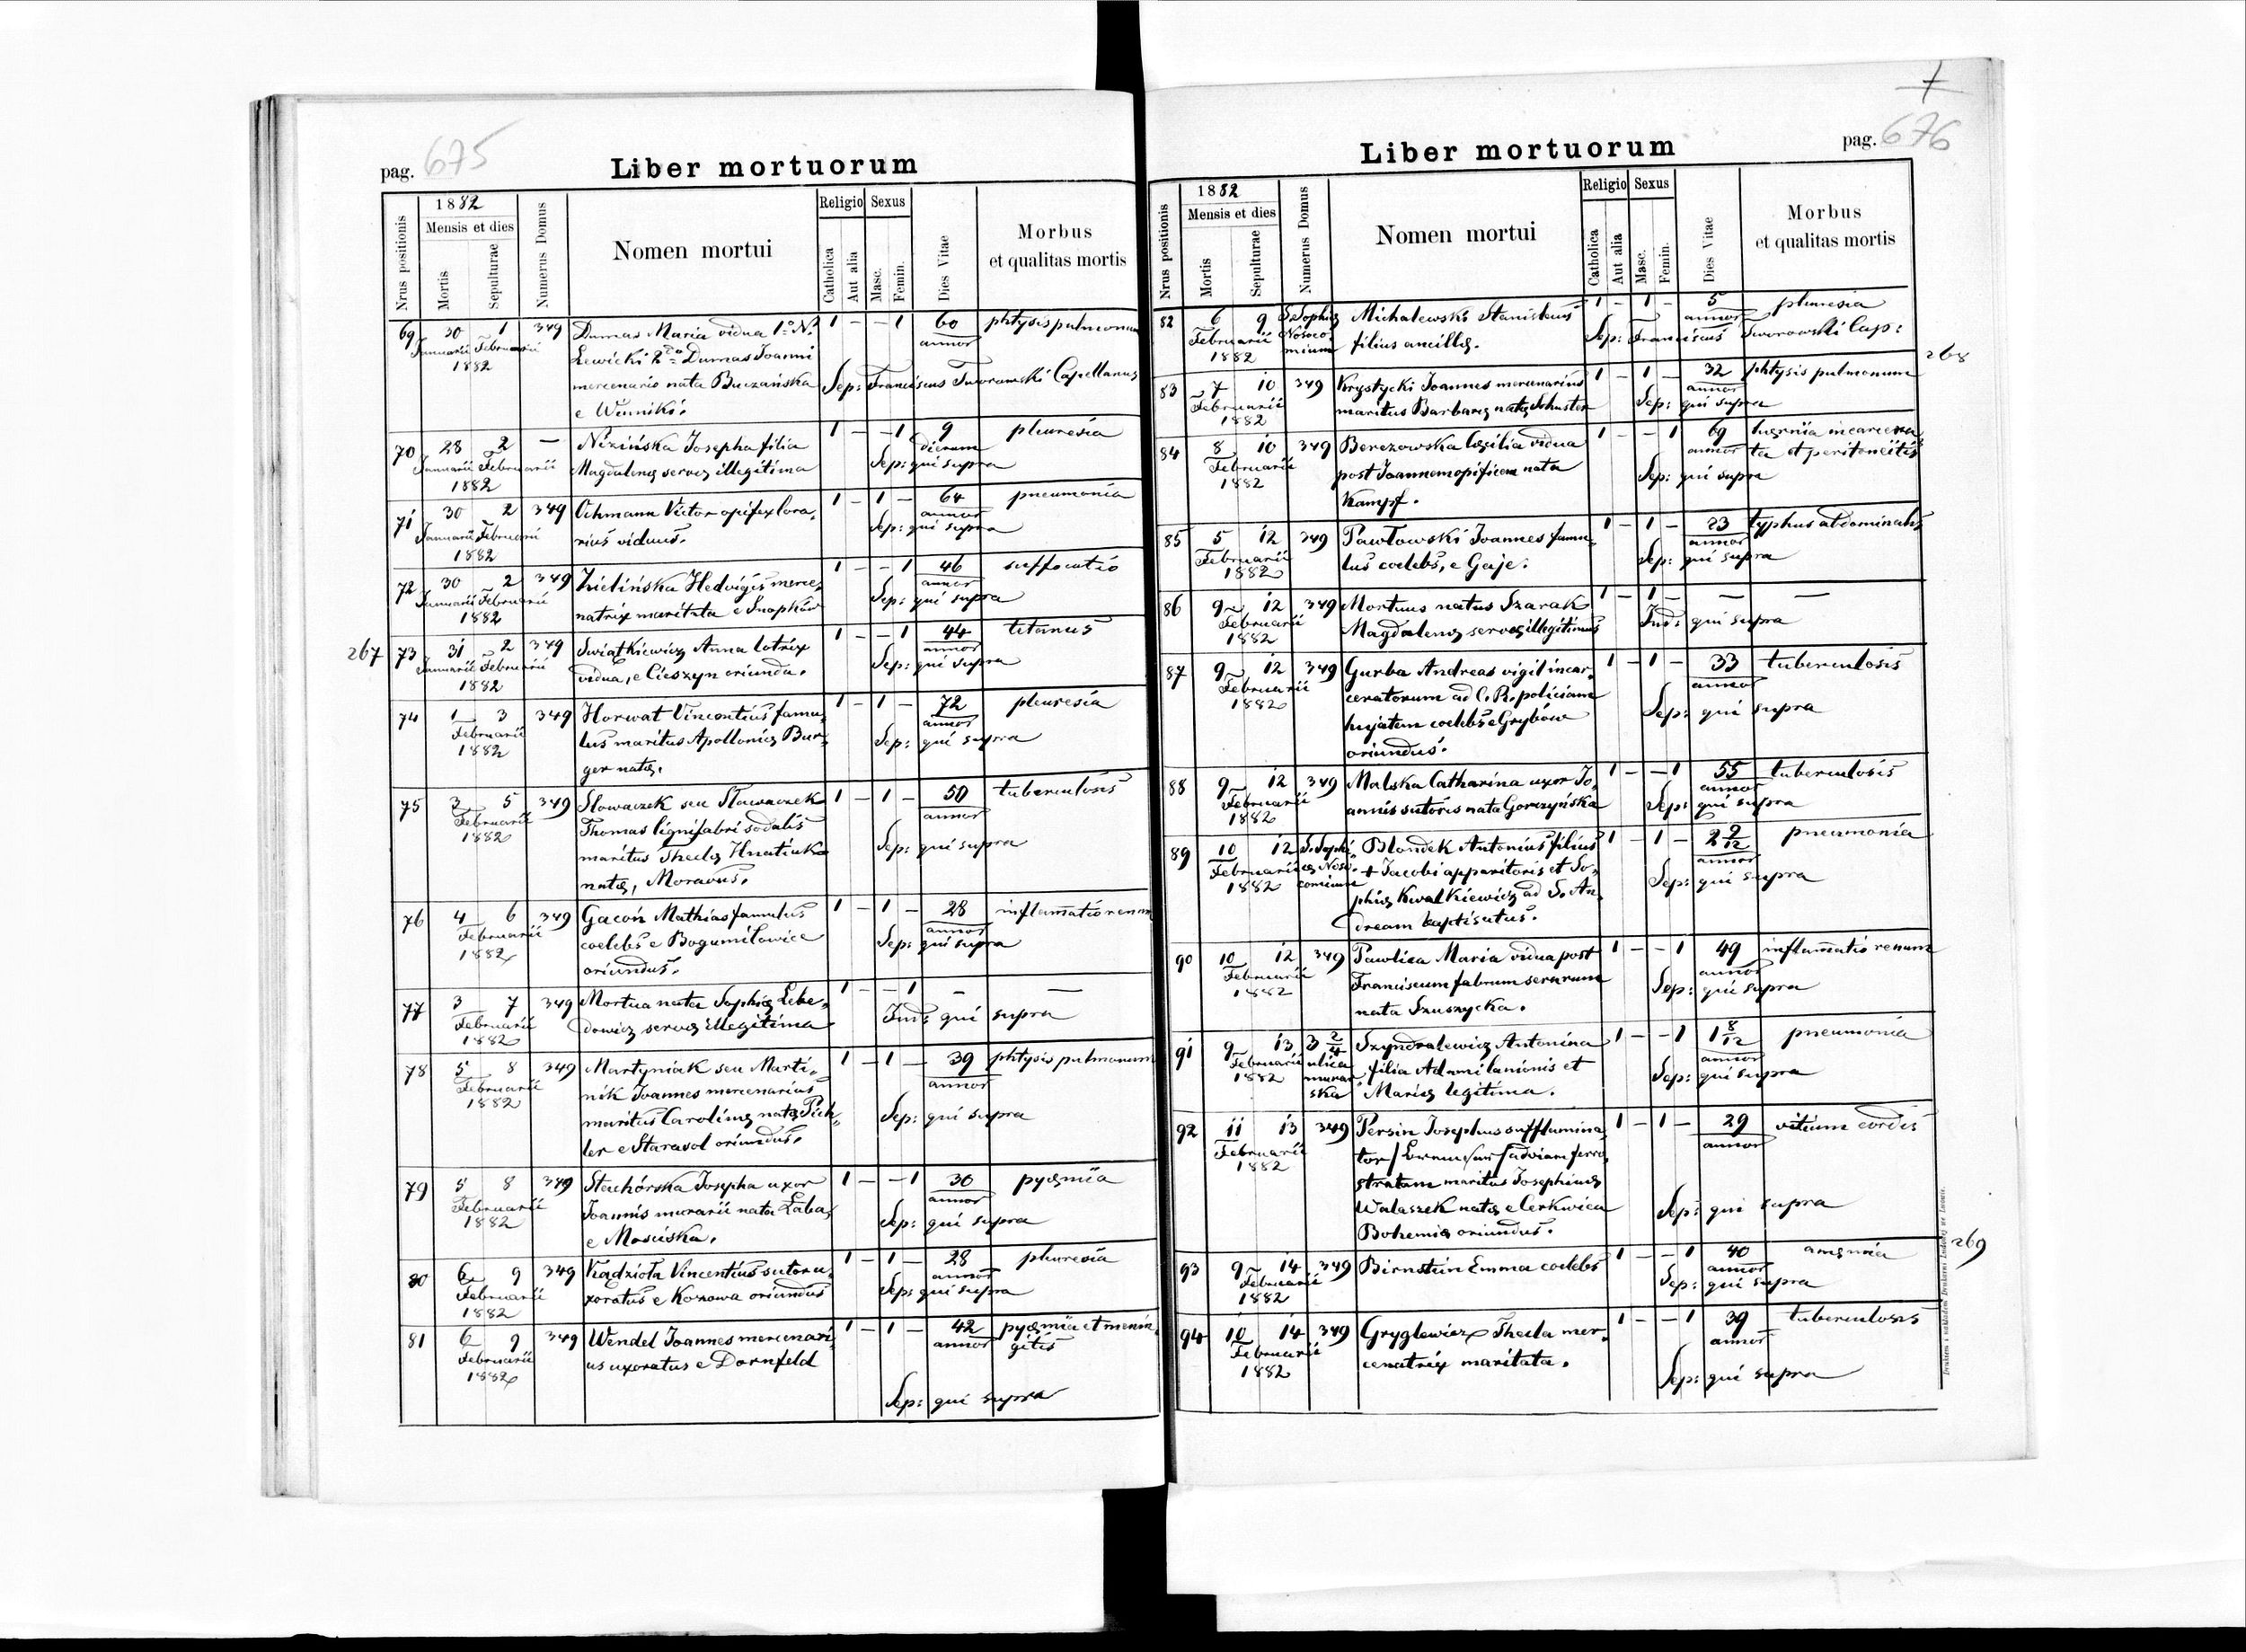 pag. 675
Liber mortuorum
Nrus positionis
1882
Mensis et dies
Mortis
Sepulturae
Numerus Domus
Nomen mortui
Religio
Catholica
Aut alia
Sexus
Masc.
Femin.
Dies Vitae
Morbus
et qualitas mortis
69 30 1 349 Dumas Maria vidua 1o N. 1 – – 1 60 phtysis pulmonum
Januarii Februarii Lewicki 2do Dumas Joanni annor
1882 mercenario nata Buczańska Sep: Franciscus Tworowski Capellanus
e Winniki.
70 28 2 — Nizińska Josepha filia 1 – – 1 9 pleuresia
Januarii Februarii Magdalenę servę illegitima dierum Sep: qui supra
1882
71 30 2 349 Ochmann Victor opifex lora, 1 – 1 – 64 pneumonia
Januarii Februarii rius viduus. annor Sep: qui supra
1882
72 30 2 349 Zielińska Hedvigis merce, 1 – – 1 46 suffocatio
Januarii Februarii natrix maritata e Snopków annor Sep: qui supra
1882
267 73 31 2 349 Swiątkiewicz Anna lotrix 1 – – 1 44 tetanus
Januarii Februarii vidua, e Cieszyn oriunda. annor Sep: qui supra
1882
74 1 3 349 Horwat Vincentius famu, 1 – 1 – 72 pleuresia
Februarii lus maritus Apollonię Bur, annor
1882 ger natę. Sep: qui supra
75 3 5 349 Slowaczek seu Slawaczek 1 – 1 – 50 tuberculosis
Februarii Thomas lignifabri sodalis annor
1882 maritus Theclę Hnatiuk Sep: qui supra
natę, Moravus.
76 4 6 349 Gacoń Mathias famulus 1 – 1 – 28 inflamatio renum
Februarii coelebs e Bogumiłowice annor
1882 oriundus. Sep: qui supra
77 3 7 349 Mortua nata Sophię Lebe, 1 – – 1 — —
Februarii dowicz servę illegitima Ind: qui supra
1882
78 5 8 349 Martyniak seu Marti, 1 – 1 – 39 phtysis pulmonum
Februarii nik Joannes mercenarius annor
1882 maritus Carolinę natę Pich, Sep: qui supra
ler e Starasol oriundus.
79 5 8 349 Stachórska Josepha uxor 1 – – 1 30 pyęmia
Februarii Joannis murarii nata Łaba, annor
1882 e Mościska. Sep: qui supra
80 6 9 349 Kądzioła Vincentius sutor u, 1 – 1 – 28 pleuresia
Februarii xoratus e Kozowa oriundus annor Sep: qui supra
1882
81 6 9 349 Wendel Joannes mercenari, 1 – 1 – 42 pyęmia et menin,
Februarii us uxoratus e Dornfeld annor gitis
1882 Sep: qui supra
pag. 676
Liber mortuorum
Nrus positionis
1882
Mensis et dies
Mortis
Sepulturae
Numerus Domus
Nomen mortui
Religio
Catholica
Aut alia
Sexus
Masc.
Femin.
Dies Vitae
Morbus
et qualitas mortis
82 6 9 S. Sophię Michalewski Stanislaus 1 – 1 – 5 pleuresia
Februarii Nosoco, filius ancillę. annor
1882 mium Sep: Franciscus Tworowski Cap:
268
83 7 10 349 Krystycki Joannes mercenarius 1 – 1 – 32 phtysis pulmonum
Februarii maritus Barbarę natę Schuster annor Sep: qui supra
1882
84 8 10 349 Berezowska Cęcilia vidua 1 – – 1 69 hęrnia incarcera,
Februarii post Joannem opificem nata annor ta et peritoneitis
1882 Kampf. Sep: qui supra
85 5 12 349 Pawłowski Joannes famu, 1 – 1 – 23 typhus abdominalis
Februarii lus coelebs, e Gaje. annor Sep: qui supra
1882
86 9 12 349 Mortuus natus Szarak 1 – 1 – — —
Februarii Magdalenę servę illegitimus Ind: qui supra
1882
87 9 12 349 Gurba Andreas vigil incar, 1 – 1 – 33 tuberculosis
Februarii ceratorum ad C. R. policiam annor
1882 hujatem coelebs e Grybów Sep: qui supra
oriundus.
88 9 12 349 Malska Catharina uxor Jo, 1 – – 1 55 tuberculosis
Februarii annis sutoris nata Gorczyńska annor Sep: qui supra
1882
89 10 12 S. Sophi, Blondek Antonius filius 1 – 1 – 2 9/12 pneumonia
Februarii ę Noso, + Jacobi apparitoris et So, annor
1882 comium phię Kwalkiewicz ad S. An, Sep: qui supra
dream baptisatus.
90 10 12 349 Pawlica Maria vidua post 1 – – 1 49 inflamatio renum
Februarii Franciscum fabrum serarum annor
1882 nata Szuszycka. Sep: qui supra
91 9 13 3 2/4 Szyndralewicz Antonina 1 – – 1 1 8/12 pneumonia
Februarii ulica filia Adami lanionis et annor
1882 murar Marię legitima. Sep: qui supra
ska
92 11 13 349 Persin Josephus sufflamina, 1 – 1 – 29 vitium cordis
Februarii tor / ad viam ferro, annor
1882 stratam maritus Josephinę
Walaszek natę e Cerkwica Sep: qui supra
Bohemię oriundus.
269
93 9 14 349 Birnstein Emma coelebs 1 – – 1 40 anęmia
Februarii annor Sep: qui supra
1882
94 10 14 349 Gryglewicz Thecla mer, 1 – – 1 39 tuberculosis
Februarii cenatrix maritata. annor
1882 Sep: qui supra